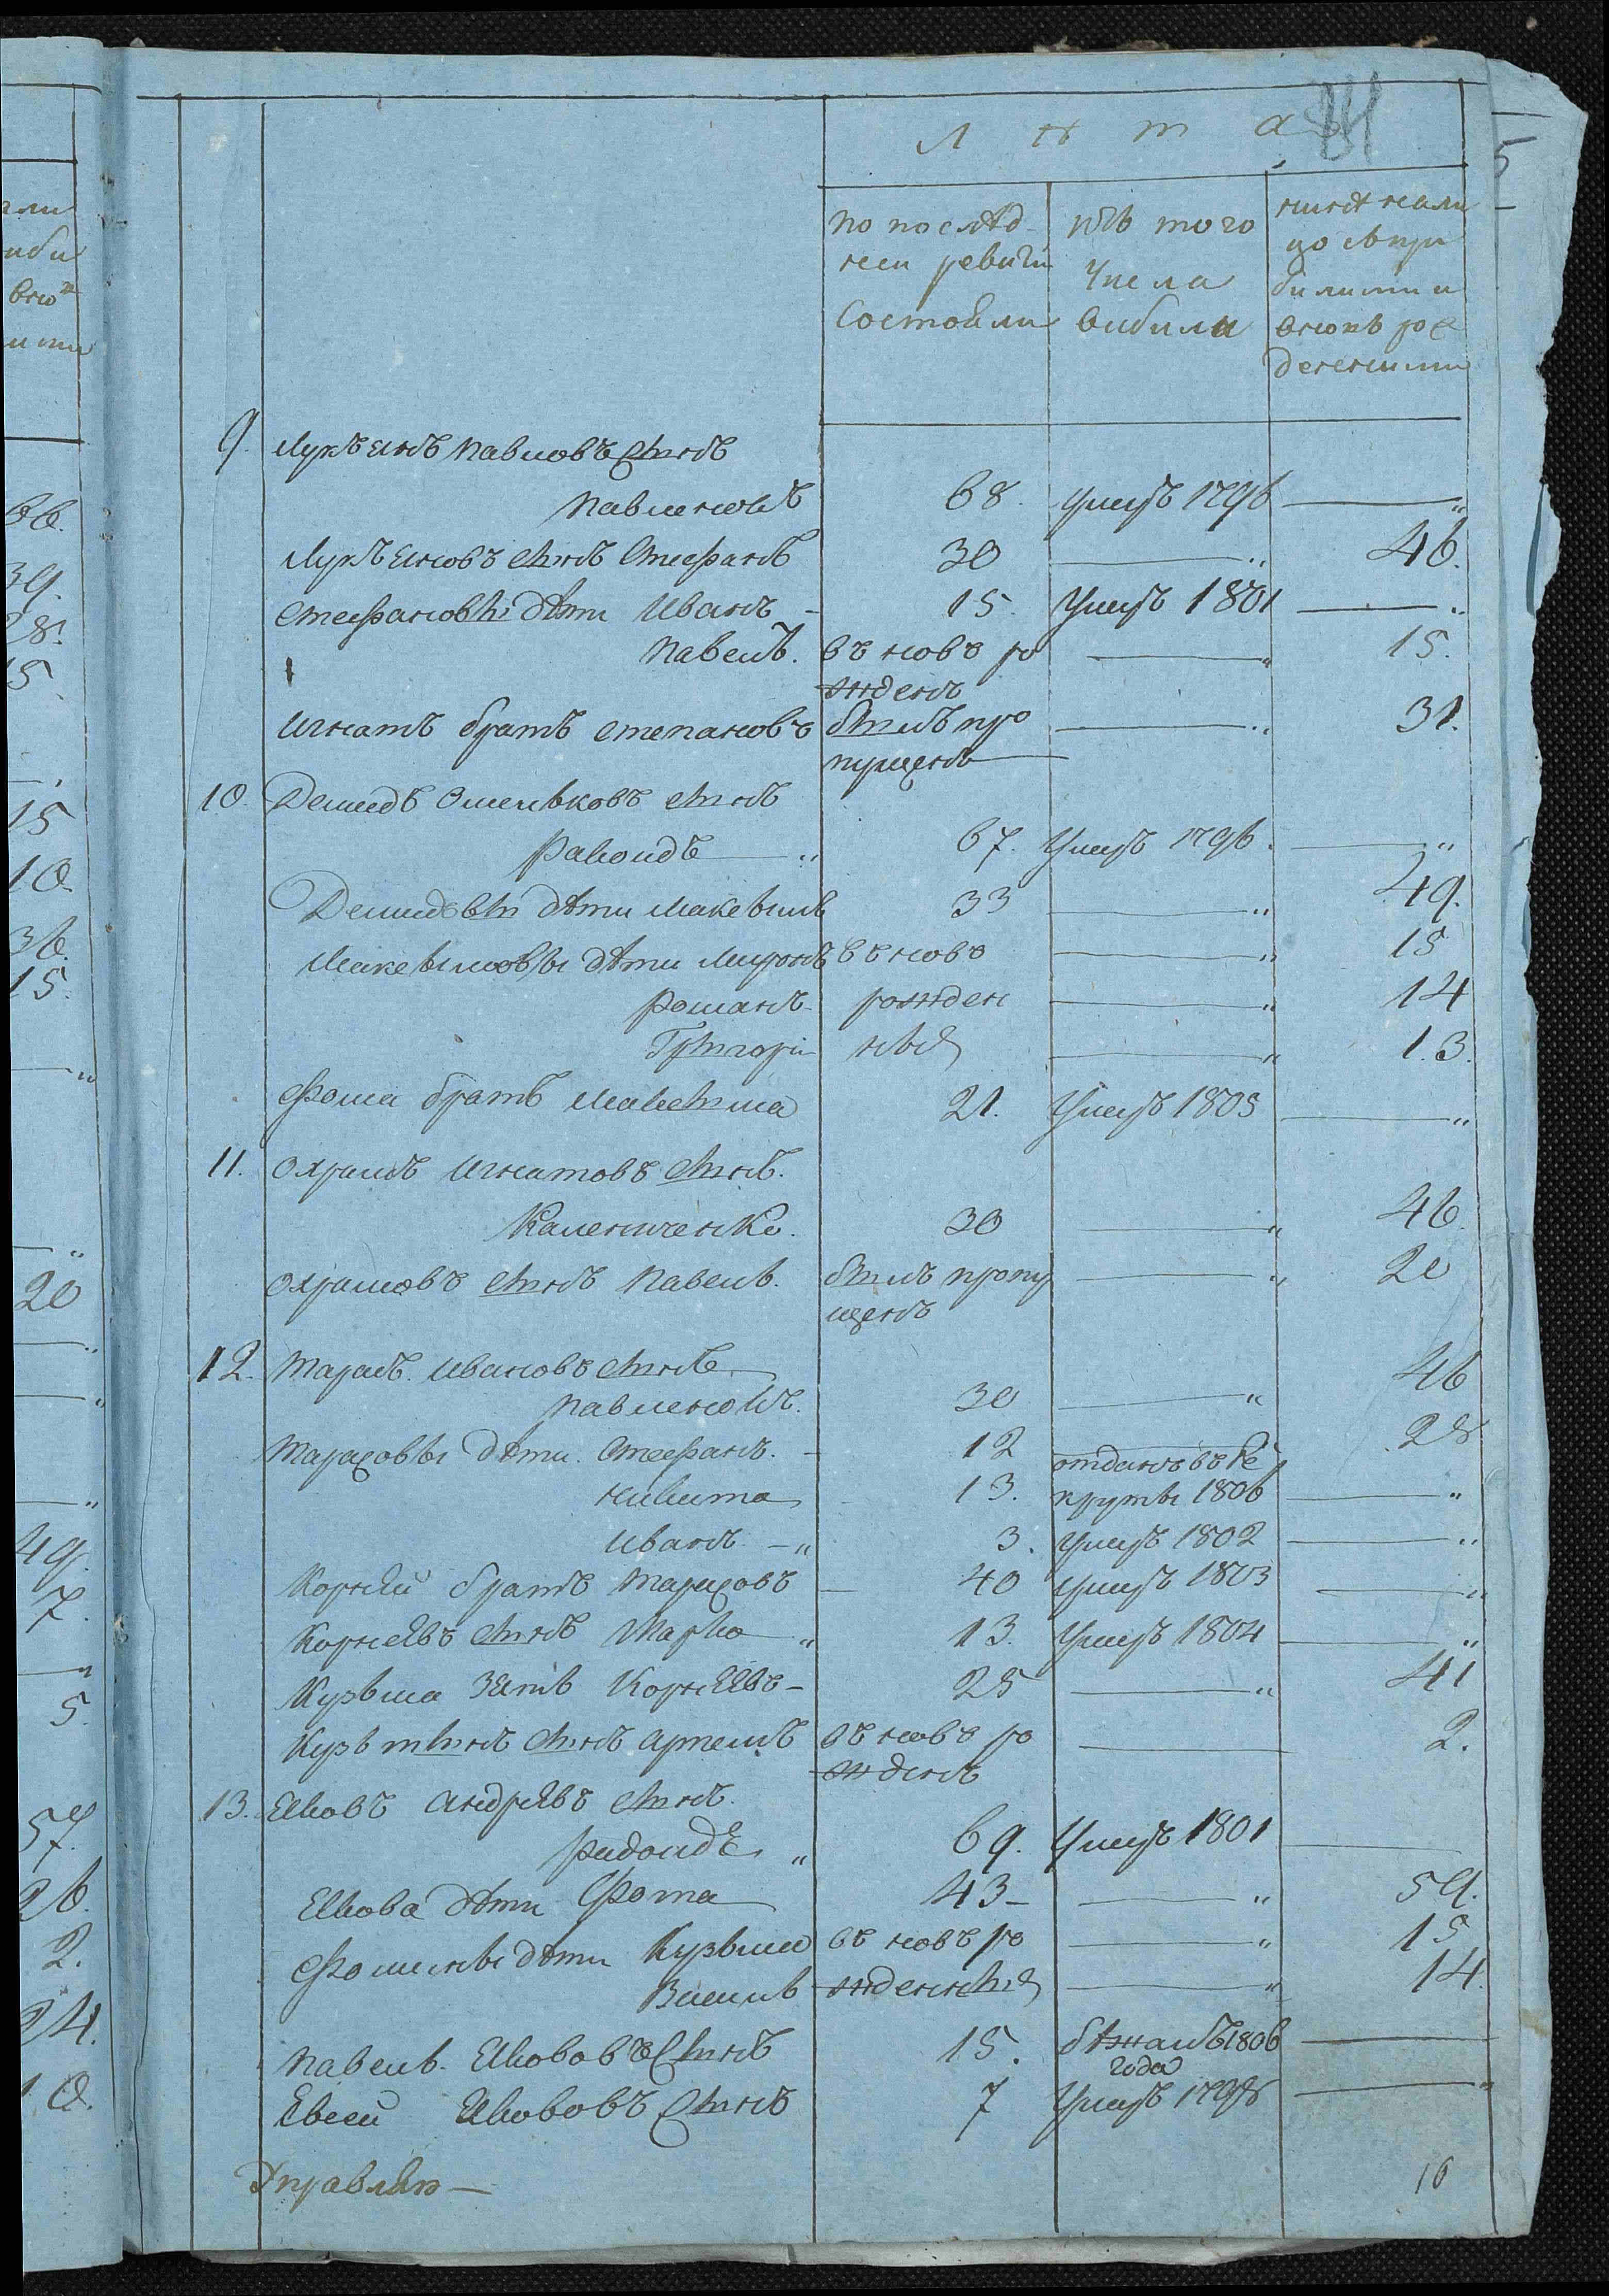 Лѣта
по послѣд
неи ревизіи
состояли
изъ того
числа
выбыли
нынѣ на ли
цо съ при
былыми и
вновь рож
денными
9. Лукъянъ Павловъ сынъ
Павленокъ 68. умеръ 1796 — „
Лукъяновъ сынъ Стефанъ 30 — „ 46.
Стефановы дѣти Иванъ - 15. умеръ 1801 — „
Павелъ. въ новъ ро — „ 15.
жденъ
Игнатъ братъ степановъ былъ про — „ 31.
пущенъ
10. Демидъ Омельковъ сынъ
67. умеръ 1796. — „
Демидовы дѣти Макѣымъ 33 — „ 49.
Макѣымовы дѣти Миронъ въ новъ — „ 15
романъ рожден — „ 14
Грыгори ныя — „ 13.
Фома братъ Макъсыма 21. умеръ 1805 — „
11. Охрамъ Игнатовъ сынъ.
Калениченко. 30 — „ 46.
Охрамовъ сынъ Павелъ. былъ пропу — „ 20
щенъ
12. Тарасъ Ивановъ сынъ
Павленокъ. 30 — „ 46
Тарасовы дѣти. Стефанъ. - 12 — 28
отданъ въ ре
никита 13. круты 1806 — „
Иванъ - „ 3. умеръ 1802 — „
Корнѣй братъ тарасовъ - 40 умеръ 1803 — „
Корнѣевъ сынъ Марко „ 13. умеръ 1804 — „
Кузьма зять Корнѣевъ - 25 — „ 41
Кузьминъ сынъ артемъ въ новъ ро — 2.
жденъ
13. Яковъ андрѣевъ сынъ.
69. умеръ 1801 —
Якова дѣти Фома 43 - — „ 59.
Фомины дѣти Кузьма въ новъ ро — „ 15
Василь жденныя — „ 14.
Павелъ. Якововъ сынъ 15. бѣжалъ 1806 —
года
Евсей Якововъ сынъ 7 умеръ 1798 — „
16